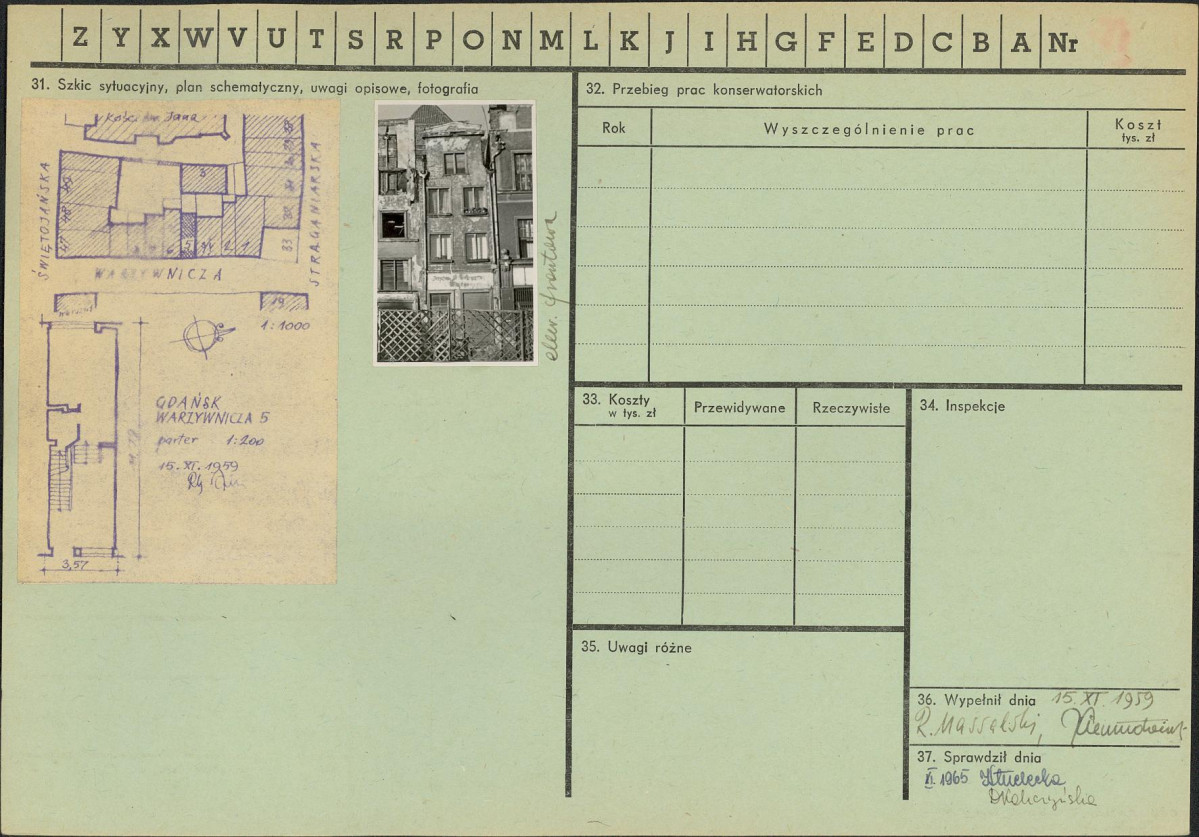 Z Y X W V U T S R P O N M L K J I H G F E D C B A Nr
31. Szkic sytuacyjny, plan schematyczny, uwagi opisowe, fotografia
Jana
ŚWIĘTOJAŃSKA
STRAGANIARSKA
3
47
5
2
1
33
WARZYWNICZA
19
1:1000
GDAŃSK
WARZYWNICZA 5
parter 1:200
15. XI. 1959
3,57
elew. frontowa
32. Przebieg prac konserwatorskich
Rok
Wyszczególnienie prac
Koszt
tys. zł
33. Koszty
w tys. zł
Przewidywane
Rzeczywiste
34. Inspekcje
35. Uwagi różne
36. Wypełnił dnia 15. XI. 1959
R. Massalski,
37. Sprawdził dnia
1965